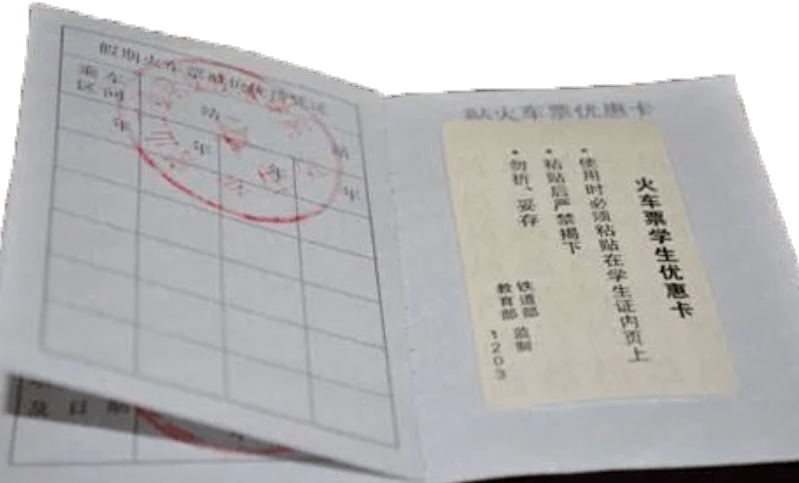 假期火车票减价优待凭证
乘车
区间
站—
站
年
年
年
年
及日期
贴火车票优惠卡
火车票学生优惠卡
·使用时必须粘贴在学生证内页上
·粘贴后严禁揭下
·勿折、妥存
铁道部
教育部
监制
1203